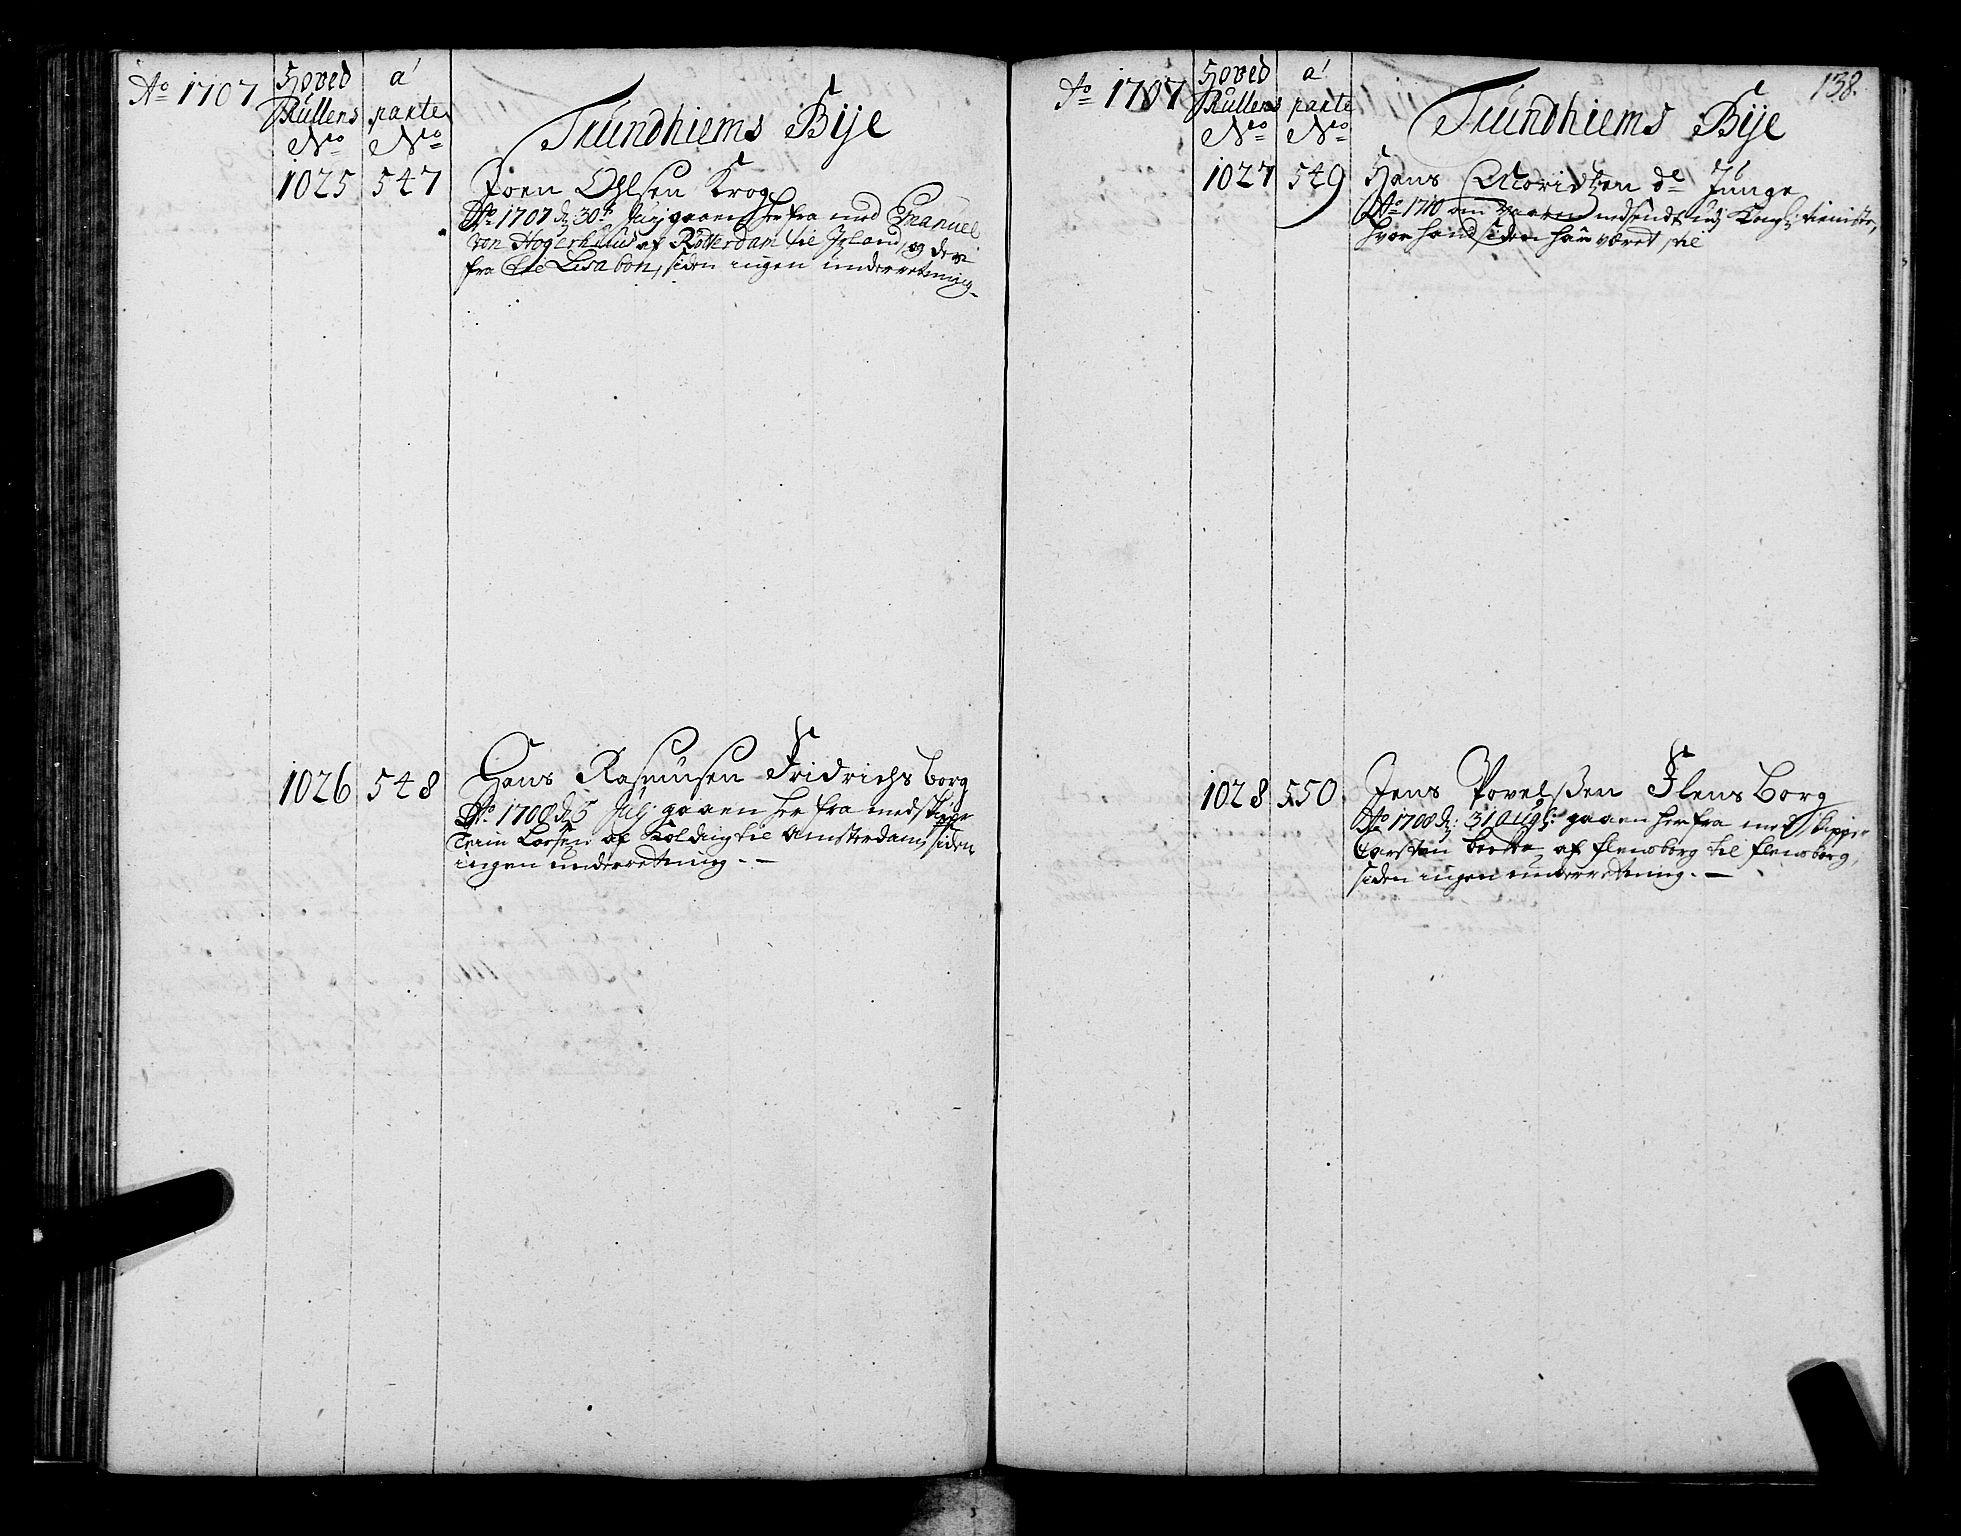 Ao 1707
Hoved
Rullens
No
a
parte
No
Trundhiems Bije
1025 547 Joen Ohlsen Krog
Ao 1707 d. 30t July gaaen her fra med Emanuel
von Hogerhuus af Rotterdam til Irland, og der
fra til Lisabon, siden ingen underretning
1026 548 Hans Rasmusen Fridrichs borg
Ao 1708 d. 5 July gaaen her fra med skipper
Lorsen af Kolding til Amsterdam, siden
ingen underretning. -
Ao 1707
Hoved
Rullens
No
a
parte
No
138.
Trundhiems Bije
1027 549 Hans Moridtzen de Junge
Ao 1710 om vaaren nedsendt udj Kongl: tieniste,
hvor hand siden har været, til
1028 550 Jens Povelsen Flens Borg
Ao 1708 d. 31 augs: gaaen her fra med skipper
Carsten af flensborg til flensborg,
siden ingen underretning. -